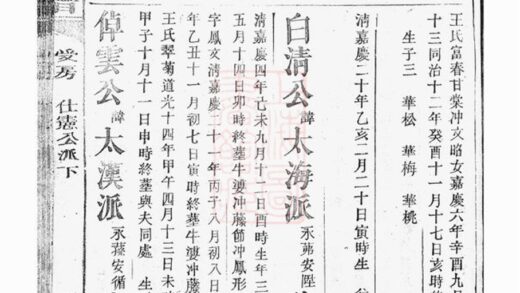 王氏富春甘棠冲文昭女嘉慶六年辛酉九月
十三同治十二年癸酉十一月十七日亥時終
生子三 華松 華梅 華桃
清嘉慶二十年乙亥二月二十日寅時生
白清公諱太海派 永弟安陞
清嘉慶四年己未九月十二日酉時生年三
五月十四日卯時終墓牛婆冲藤節冲鳳形
字鳳文清嘉慶二十一年丙子八月初八日
年乙丑十一月初七日寅時終墓牛婆冲藤
王氏翠菊道光十四年甲午四月十三日未
甲子十月十一日申時終墓與夫同處 生
倬雲公諱太漢派 永蓀安循
受房 仕憲公派下